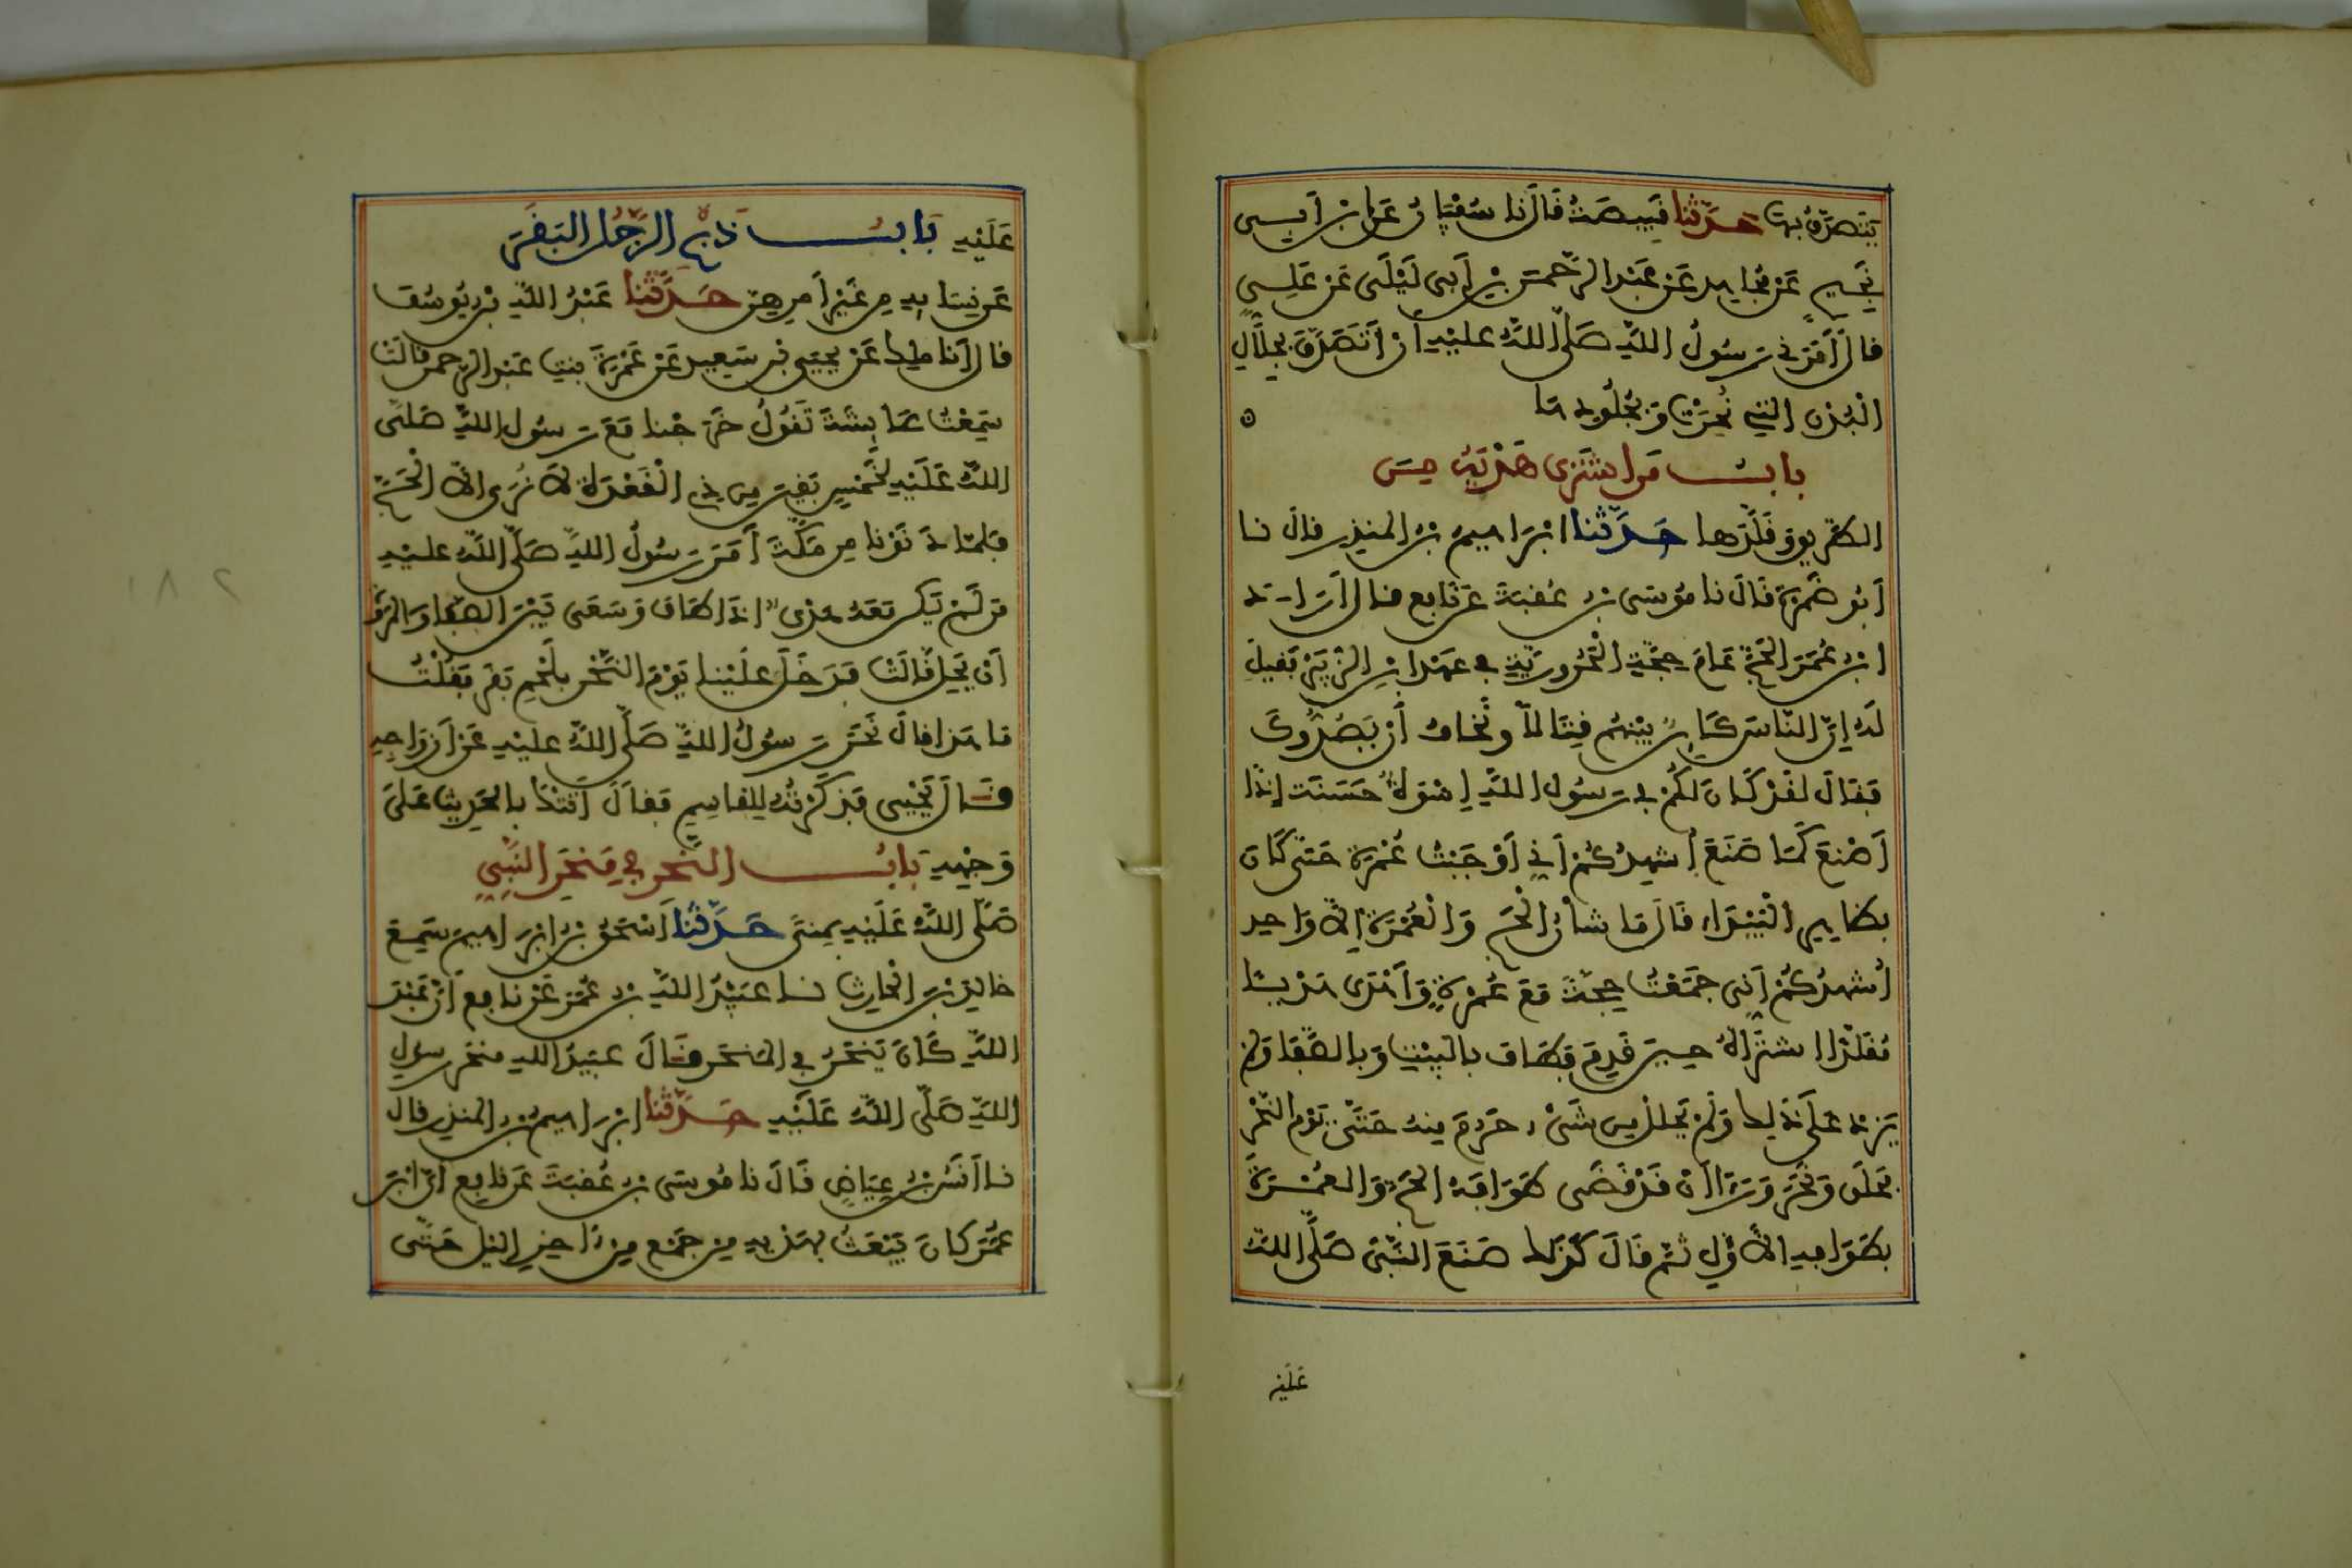 يَتَصَدَّقُ بِهَا حَدَّثَنَا قَبِيصَةُ قَالَ نا سُفْيَانُ عَنِ ابْنِ أَبِي
نَجِيحٍ عَنْ مُجَاهِدٍ عَنْ عَبْدِ الرَّحْمَنِ بْنِ أَبِي لَيْلَى عَنْ عَلِيٍّ
قَالَ أَمَرَنِي رَسُولُ اللَّهِ صَلَّى اللَّهُ عَلَيْهِ أَنْ أَتَصَدَّقَ بِجِلَالِ
الْبُدْنِ الَّتِي نُحِرَتْ وَبِجُلُودِهَا
بَابُ مَنِ اشْتَرَى هَدْيَهُ مِنَ
الطَّرِيقِ وَقَلَّدَهَا حَدَّثَنَا ابْرَاهِيمُ بْنُ الْمُنْذِرِ قَالَ نا
أَبُو ضَمْرَةَ قَالَ نا مُوسَى بْنُ عُقْبَةَ عَنْ نَافِعٍ قَالَ أَرَادَ
ابْنُ عُمَرَ الْحَجَّ عَامَ حَجَّةِ الْحَرُورِيَّةِ فِي عَهْدِ ابْنِ الزُّبَيْرِ فَقِيلَ
لَهُ إِنَّ النَّاسَ كَائِنٌ بَيْنَهُمْ قِتَالٌ وَنَخَافُ أَنْ يَصُدُّوكَ
فَقَالَ لَقَدْ كَانَ لَكُمْ فِي رَسُولِ اللَّهِ إِسْوَةٌ حَسَنَةٌ إِذًا
أَصْنَعَ كَمَا صَنَعَ أُشْهِدُكُمْ أَنِّي أَوْجَبْتُ عُمْرَةً حَتَّى كَانَ
بِظَاهِرِ الْبَيْدَاءِ قَالَ مَا شَأْنُ الْحَجِّ وَالْعُمْرَةِ إِلَّا وَاحِدٌ
أُشْهِدُكُمْ أَنِّي جَمَعْتُ حَجَّةً مَعَ عُمْرَةٍ وَأَهْدَى هَدْيًا
مُقَلَّدًا اشْتَرَاهُ حِينَ قَدِمَ فَطَافَ بِالْبَيْتِ وَبِالصَّفَا وَلَمْ
يَزِدْ عَلَى ذَلِكَ وَلَمْ يَحْلِلْ مِنْ شَيْءٍ حَرُمَ مِنْهُ حَتَّى يَوْمِ النَّحْرِ
فَحَلَقَ وَنَحَرَ وَرَأَى أَنْ قَدْ قَضَى طَوَافَهُ الْحَجَّ وَالْعُمْرَةَ
بِطَوَافِهِ الْأَوَّلِ ثُمَّ قَالَ كَذَلِكَ صَنَعَ النَّبِيُّ صَلَّى اللَّهُ
عَلَيْهِ
عَلَيْهِ بَابُ ذَبْحِ الرَّجُلِ الْبَقَرَ
عَنْ نِسَائِهِ مِنْ غَيْرِ أَمْرِهِنَّ حَدَّثَنَا عَبْدُ اللَّهِ بْنُ يُوسُفَ
قَالَ أَنَا مَالِكٌ عَنْ يَحْيَى بْنِ سَعِيدٍ عَنْ عَمْرَةَ بِنْتِ عَبْدِ الرَّحْمَنِ قَالَتْ
سَمِعْتُ عَائِشَةَ تَقُولُ خَرَجْنَا مَعَ رَسُولِ اللَّهِ صَلَّى
اللَّهُ عَلَيْهِ لِخَمْسٍ بَقِينَ مِنْ ذِي الْقَعْدَةِ لَا نُرَى إِلَّا الْحَجَّ
فَلَمَّا دَنَوْنَا مِنْ مَكَّةَ أَمَرَ رَسُولُ اللَّهِ صَلَّى اللَّهُ عَلَيْهِ
مَنْ لَمْ يَكُنْ مَعَهُ هَدْيٌ إِذَا طَافَ وَسَعَى بَيْنَ الصَّفَا وَالْمَرْوَةِ
أَنْ يَحِلَّ قَالَتْ فَدَخَلَ عَلَيْنَا يَوْمَ النَّحْرِ بِلَحْمِ بَقَرٍ فَقُلْتُ
مَا هَذَا قَالَ نَحَرَ رَسُولُ اللَّهِ صَلَّى اللَّهُ عَلَيْهِ عَنْ أَزْوَاجِهِ
قَالَ يَحْيَى فَذَكَرْتُهُ لِلْقَاسِمِ فَقَالَ أَتَتْكَ بِالْحَدِيثِ عَلَى
وَجْهِهِ بَابُ النَّحْرِ فِي مَنْحَرِ النَّبِيِّ
صَلَّى اللَّهُ عَلَيْهِ بِمِنًى حَدَّثَنَا إِسْحَقُ بْنُ ابْرَاهِيمَ سَمِعَ
خَالِدَ بْنَ الْحَارِثِ نا عُبَيْدُ اللَّهِ بْنُ عُمَرَ عَنْ نَافِعٍ أَنَّ عَبْدَ
اللَّهِ كَانَ يَنْحَرُ فِي الْمَنْحَرِ قَالَ عُبَيْدُ اللَّهِ مَنْحَرِ رَسُولِ
اللَّهِ صَلَّى اللَّهُ عَلَيْهِ حَدَّثَنَا ابْرَاهِيمُ بْنُ الْمُنْذِرِ قَالَ
نا أَنَسُ بْنُ عِيَاضٍ قَالَ نا مُوسَى بْنُ عُقْبَةَ عَنْ نَافِعٍ أَنَّ ابْنَ
عُمَرَ كَانَ يَبْعَثُ بِهَدْيِهِ مِنْ جَمْعٍ مِنْ آخِرِ اللَّيْلِ حَتَّى
٢٨١